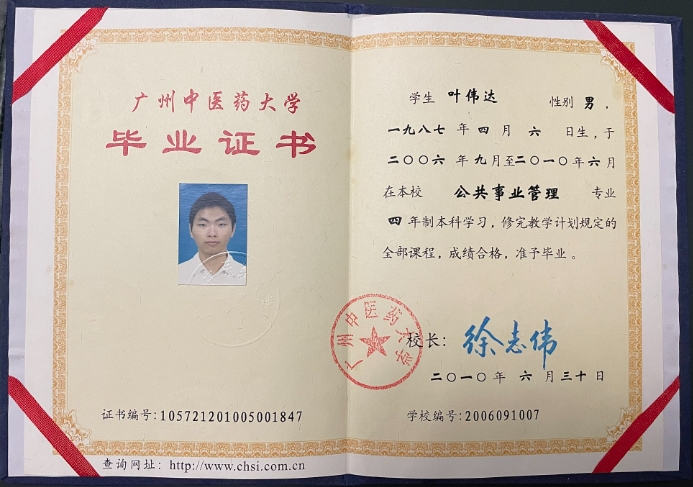 广州中医药大学
毕业证书
证书编号：105721201005001847
查询网址：http://www.chsi.com.cn
学生 叶伟达 性别 男，
一九八七 年 四 月 六 日生，于
二〇〇六 年 九 月至二〇一〇 年 六 月
在本校 公共事业管理 专业
四 年制本科学习，修完教学计划规定的
全部课程，成绩合格，准予毕业。
广州中医药大学
校长：徐志伟
二〇一〇 年 六 月 三十 日
学校编号：2006091007